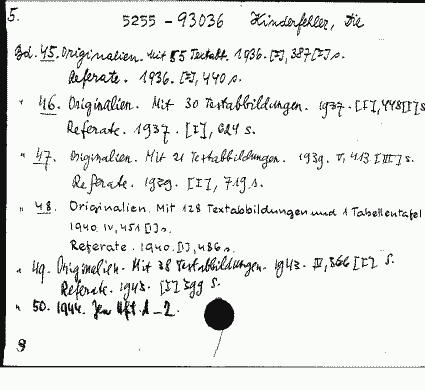 5.
5255-93036 Kinderfehler, Die
Bd. 45. Originalien. Mit 55 Textabb. 1936. [I], 387 [I] s.
Referate. 1936. [I], 440 s.
" 46. Originalien. Mit 30 Textabbildungen. 1937. [I], 448 [I] s
Referate. 1937. [I], 624 s.
" 47. Originalien. Mit 21 Textabbildungen. 1939. V, 413 [III] s.
Referate. 1939. [I], 719 s.
" 48. Originalien. Mit 128 Textabbildungen und 1 Tabellentafel
1940. IV, 451 [I] s.
Referate. 1940. [I], 486 s.
" 49. Originalien. Mit 38 Textabbildungen. 1943. IV, 366 [I] s.
Referate. 1943. [I] 399 s.
" 50. 1944. Hft. 1-2.